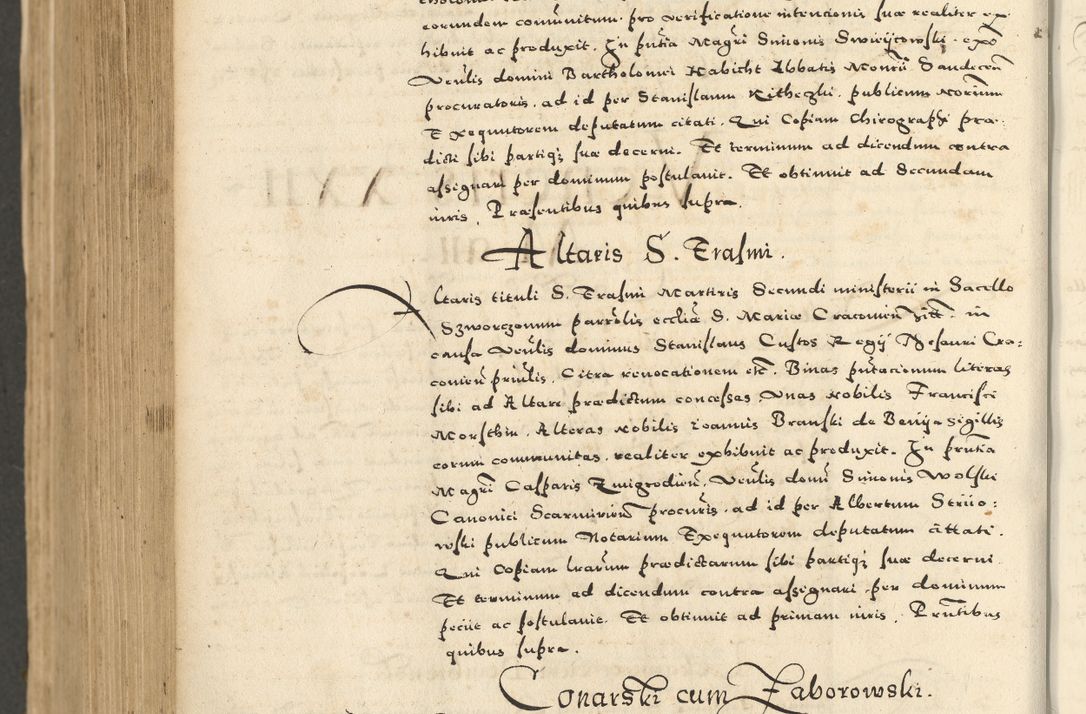 eorundem comunitum pro verificatione intencionis suæ realiter ex
hibuit ac produxit. In pñtia Magri Simonis Swieijcowski
Venlis domini Bartholomei Habicht Abbatis Sandecen
procuratoris. ad id per Stanislaum publicum Norium
Exequutorem deputatum citati. Qui Copiam Chirographi præ:
dicti sibi partiq; suæ decerni. Et terminum ad dicendum contra
assignari per dominum postulavit. Et obtinuit ad Secundam
iuris. Præsentibus quibus supra.
Altaris S. Erasmi.
Altaris tituli S. Erasmi Martiris Secundi ministerii in Sacello
Szworczonum parrolis eccliæ S. Mariæ Cracovien in
causa Venlis dominus Stanislaus Custos Regij Thesauri Cra:
covien Citra revocationem etc. Binas literas
sibi ad Altare prædictum concessas Unas nobilis Francisci
Morsthin. Alteras nobilis Joannis Branski de sigillis
eorum communitas. realiter exhibuit ac produxit. In pñtia
Magri Casparis Zmigrodien. Venlis domi Simonis Wolski
Canonici procuris. ad id per Albertum Striio:
wski publicum Notarium Exequutorem deputatum cittati.
Qui Copiam lrarum prædictarum sibi partiq; suæ decerni.
Et terminum ad dicendum contra assignari per dominum
peciit ac postulavit. Et obtinuit ad primam iuris. Prntibus
quibus supra.
Conarski cum Zaborowski.